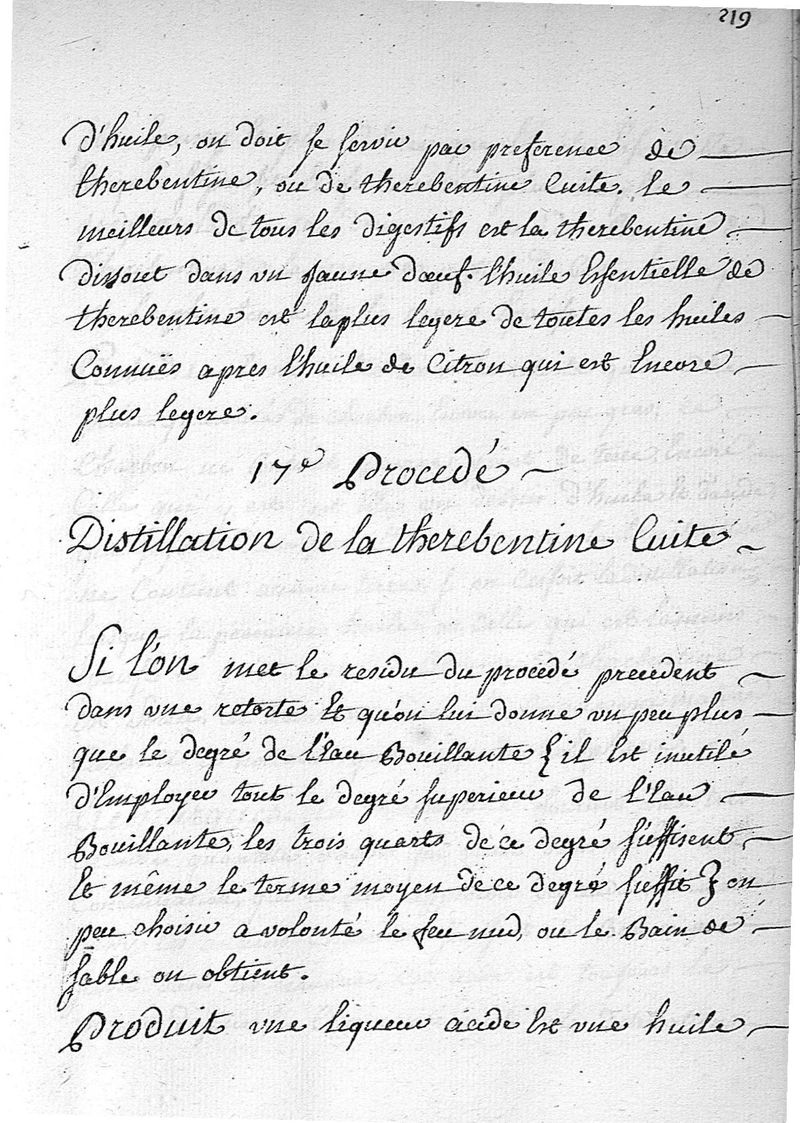 219
d'huile, on doit se servir par preference de
therebentine, ou de therebentine Cuite. le
meilleurs de tous les digestifs est la therebentine
dissout dans un Jaune d'oeuf. l'huile Essentielle de
therebentine est la plus legere de toutes les huiles
Connuës apres l'huile de Citron qui est Encore
plus legere.
17e Procedé
Distillation de la therebentine Cuite
Si l'on met le residu du procedé precedent
dans une retorte Et qu'on lui donne un peu plus
que le degré de l'Eau Bouillante { il Est inutilé
d'Employer tout le degré superieur de l'Eau
Bouillante, les trois quarts de ce degré suffisent,
Et même le terme moyen de ce degré suffit } on
peu choisir a volonté le feu nud, ou le Bain de
sable on obtient.
Produit une liqueur acide Est une huile